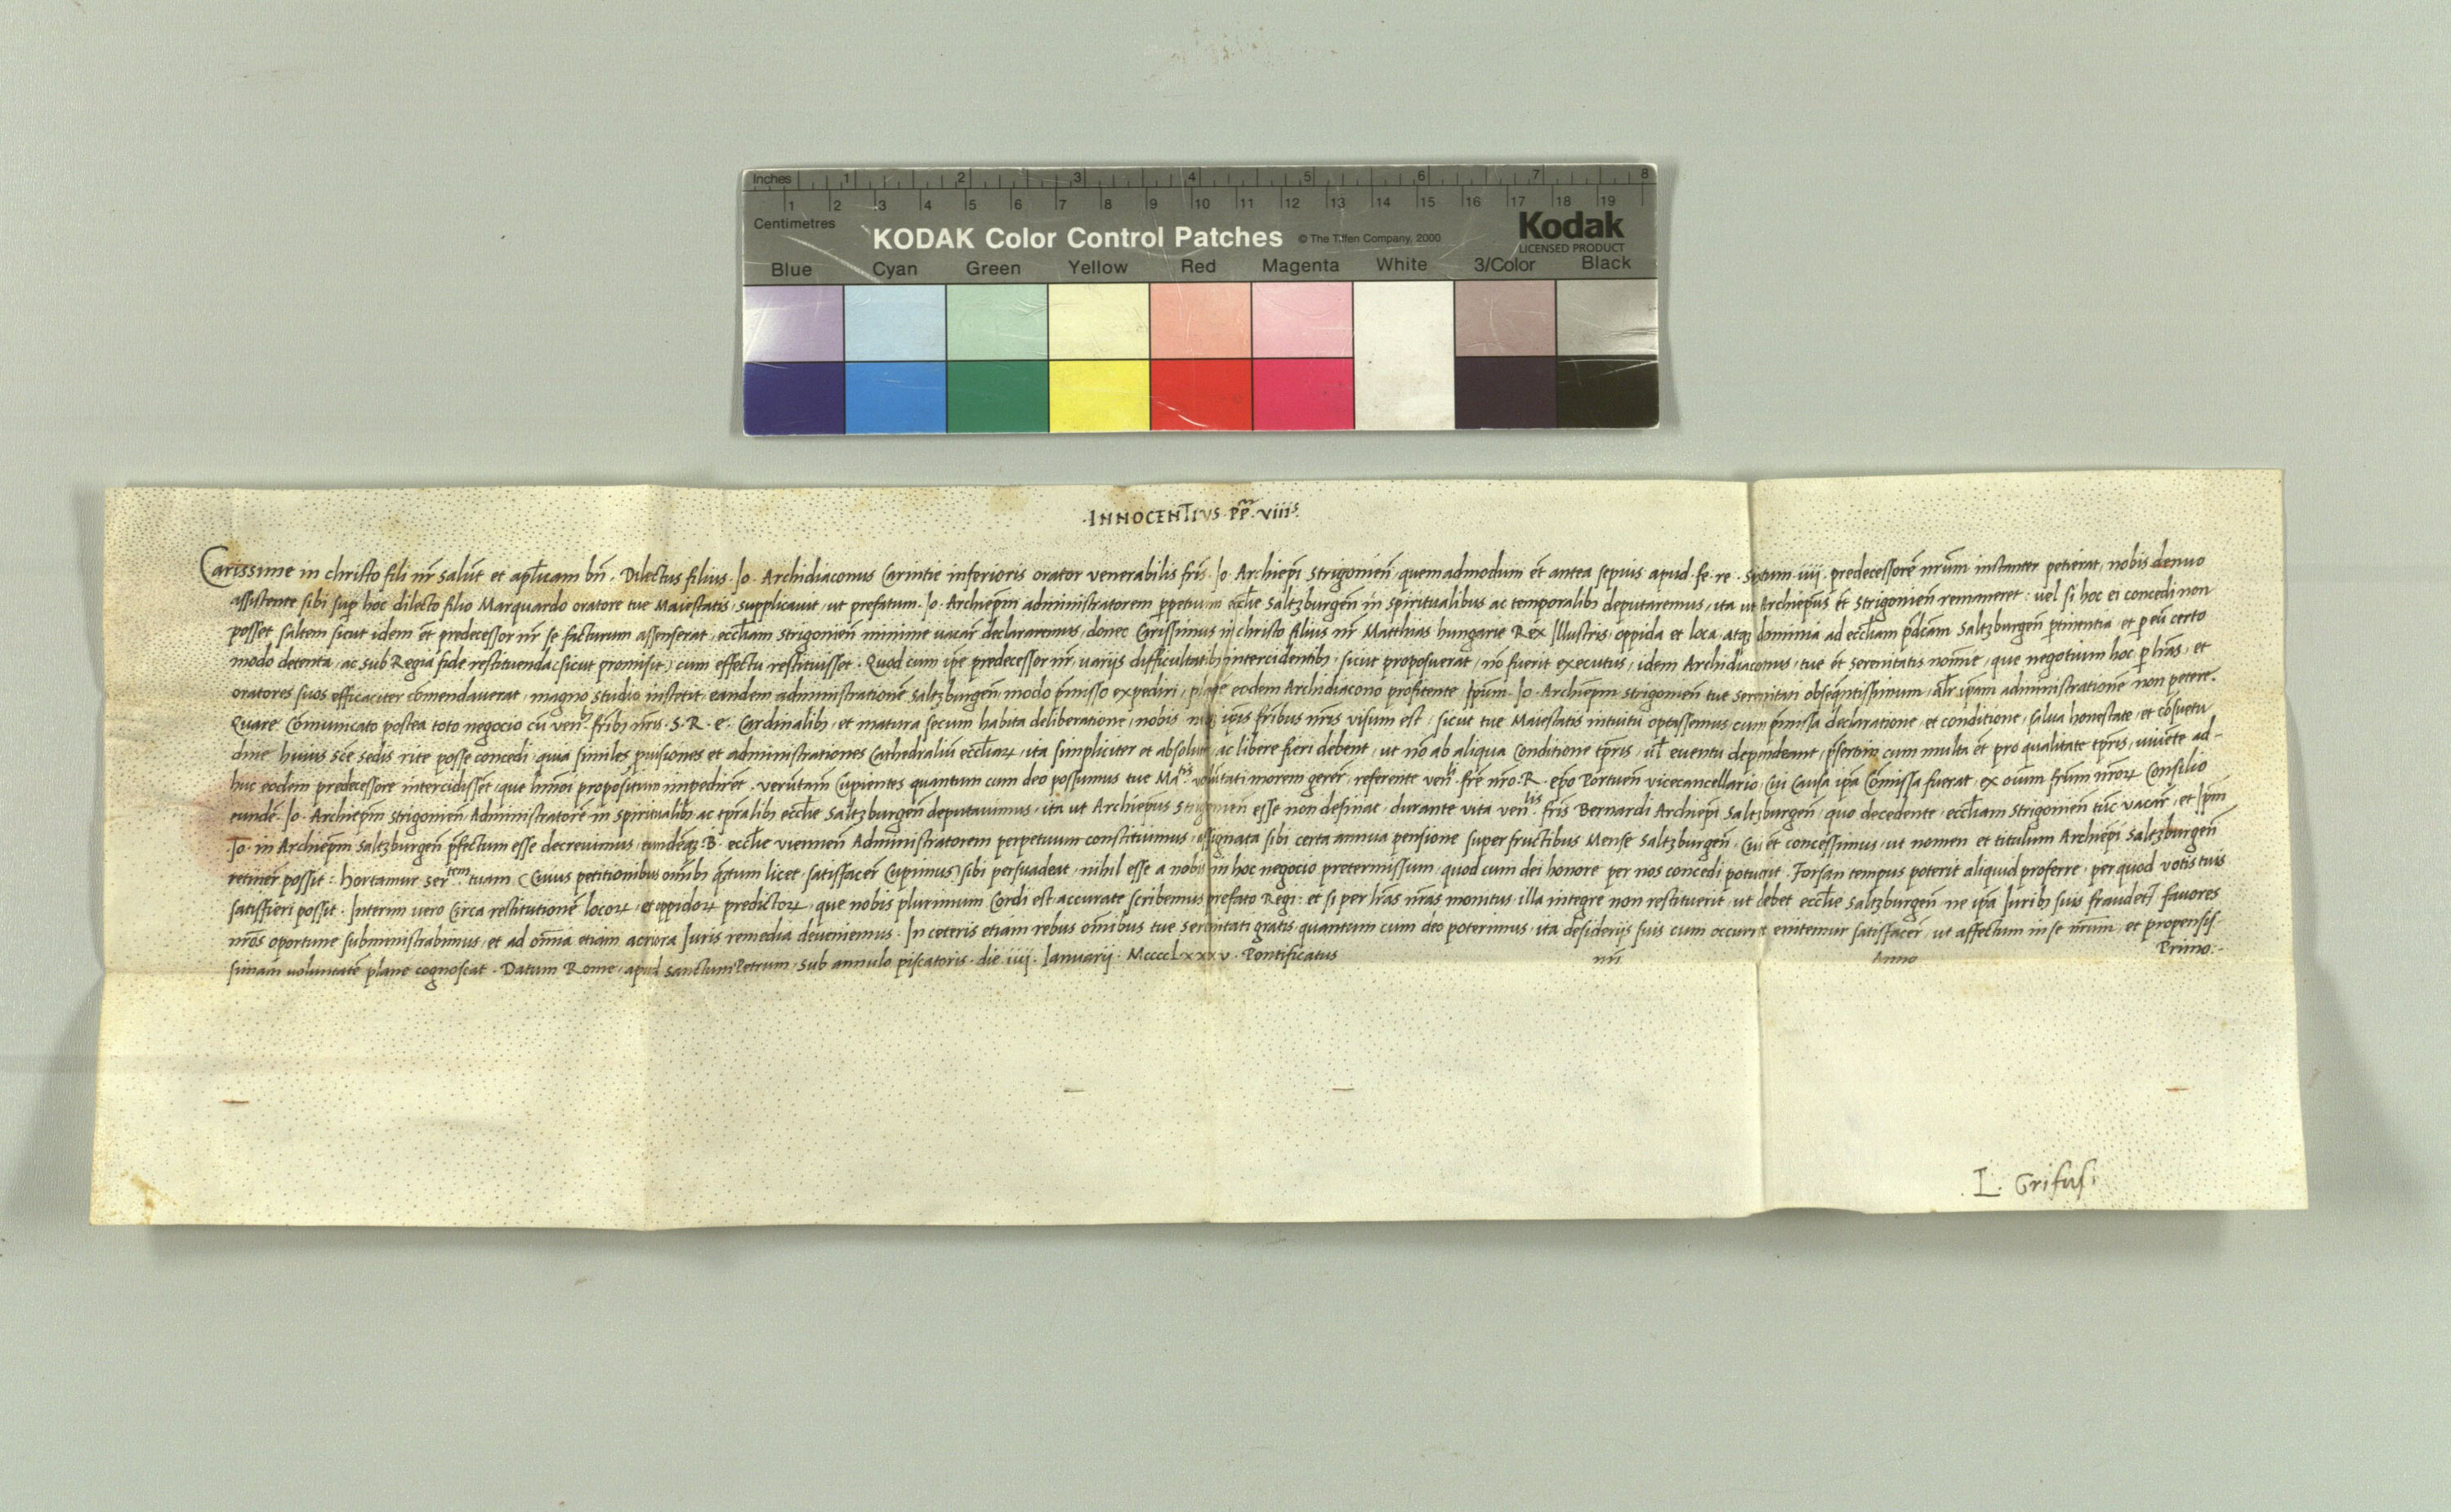 Inches 1 2 3 4 5 6 7 8
1 2 3 4 5 6 7 8 9 10 11 12 13 14 15 16 17 18 19
Centimetres
KODAK Color Control Patches © The Tiffen Company, 2000 Kodak
LICENSED PRODUCT
Blue Cyan Green Yellow Red Magenta White 3/Color Black
INNOCENTIVS PP. VIII
Carissime in christo fili nr̄ salut̄ et aplicam bn̄. Dilectus filius Jo. Archidiaconus Carintie inferioris orator venerabilis fr̄is Jo. Archiep̄i Strigonien̄ quemadmodum et̄ antea sepius apud fe. re. Sixtum iiij predecessorē nr̄um instanter petierat, nobis denuo
assistente sibi sup hoc dilecto filio Marquardo oratore tue Maiestatis, supplicauit, ut prefatum Jo. Archiep̄m administratorem ppetuum eccl̄ie Saltzburgen̄ in spiritualibus ac temporalibz deputaremus, ita ut Archiep̄us et̄ Strigonien̄ remaneret: uel si hoc ei concedi non
posset, saltem sicut idem et̄ predecessor nr̄ se facturum assenserat, eccl̄iam Strigonien̄ minime uacar̄ declararemus, donec Carissimus in christo filius nr̄ Matthias hungarie Rex Illustris, oppida et loca, atqz dominia ad eccl̄iam p̄dcām Saltzburgen̄ ptinentia, et p eū certo
modo detenta, ac sub Regia fide restituenda (sicut promisit) cum effectu restituisset. Quod cum ip̄e predecessor nr̄, varijs difficultatibz intercidentibz, sicut proposuerat, nō fuerit executus, idem Archidiaconus, tue et̄ serenitatis noīne, que negotium hoc p lr̄as, et
oratores suos efficaciter cōmendauerat, magno studio institit, eandem administrationē Saltzburgen̄, modo p̄misso expediri, eodem Archidiacono profitente Ipsum Jo. Archiep̄m Strigonien̄ tue serenitati obseqn̄tissimum, al̄r ip̄am administrationē non petere.
Quare Cōmunicato postea toto negocio cū ven. fr̄ibz nr̄is S. R. e. Cardinalibz, et matura secum habita deliberatione, nobis ip̄is fr̄ibus nr̄is visum est, sicut tue Maiestatis intuitu optassemus cum p̄missa declaratione, et conditione, salua honestate, et cōsuetu
dine huius sc̄e sedis rite posse concedi, quia similes puisiones et administrationes Cathedraliū eccl̄iarz, ita simpliciter et absolute, ac libere fieri debent, ut nō ab aliqua Conditione tp̄ris, ul̄ euentu dependeant, p̄sertim cum multa et̄ pro qualitate tp̄ris, uiuēte ad-
huc eodem predecessore intercidisset, que hmōi propositum impedirēt. verūtam̄ Cupientes quantum cum deo possumus tue Matis uolūtati morem gerer̄, referente ven. fr̄e nr̄o R. ep̄o Portuen̄ vicecancellario, Cui Causa ip̄a Cōmissa fuerat, ex oīum fr̄um nr̄orz Consilio
eundē Jo. Archiep̄m Strigonien̄ Administratorē in spiritualibz ac tp̄ralibz eccl̄ie Saltzburgen̄ deputauimus, ita ut Archiep̄us Strigonien̄ esse non desinat, durante uita venlis fr̄is Bernardi Archiep̄i Saltzburgen̄, quo decedente, eccl̄iam Strigonien̄ tūc vacar̄, et Ip̄m
Jo. in Archiep̄m Saltzburgen̄ p̄fectum esse decreuimus, eundēqz B. eccl̄ie viennen̄ Administratorem perpetuum constituimus, assignata sibi certa annua pensione super fructibus Mense Saltzburgen̄, Cui et̄ concessimus, ut nomen et titulum Archiep̄i Saltzburgen̄
retiner̄ possit: hortamur sertem tuam (Cuius petitionibus omībz q̄ntum licet satisfacer̄ Cupimus) sibi persuadeat, nihil esse a nobis in hoc negocio pretermissum, quod cum dei honore per nos concedi potuerit. Forsan tempus poterit aliquid proferre, per quod votis tuis
satisfieri possit. Interim vero Circa restitutionē locorz, et oppidorz predictorz, que nobis plurimum Cordi est, accurate scribemus prefato Regi: et si per lr̄as nr̄as monitus, illa integre non restituerit, ut debet eccl̄ie Saltzburgen̄, ne ip̄a Juribz suis fraudet, fauores
nr̄os oportune subministrabimus, et ad om̄ia etiam acriora Juris remedia deueniemus. In ceteris etiam rebus om̄ibus tue serenitati gratis, quantum cum deo poterimus, ita desiderijs suis cum occurrit enitemur satisfacer̄, ut affectum in se nr̄um, et propensis
simam uoluntatē plane cognoscat. Datum Rome, apud sanctum Petrum, sub annulo piscatoris, die iiij. Ianuarij. Mcccclxxxv. Pontificatus nr̄i Anno Primo.
L. Grifus.